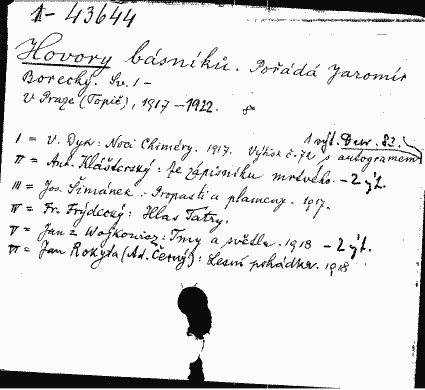 1-43644
Hovory básníků. Pořádá Jaromír
Borecký. Sv. 1-
V Praze (Topič), 1917-1922. 8°
1 výt. Duv. 82.
I = V. Dyk: Noci Chiméry. 1917. Výtisk č. 72 s autogramem
II = Ant. Klášterský: Ze zápisníku mrtvého. - 2 výt.
III = Jos. Šimánek: Propasti a plameny. 1917.
IV = Fr. Frýdecký: Hlas Tatry.
V = Jan z Wojkowicz: Tmy a světla. 1918 - 2 výt.
VI = Jan Rokyta (Ad. Černý): Lesní pohádka. 1918